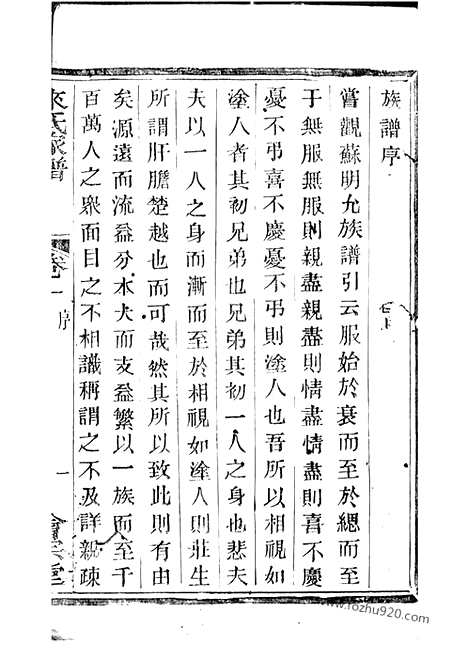 族譜序
嘗觀蘇明允族譜引云服始於衰而至於緦而至
于無服無服則親盡親盡則情盡情盡則喜不慶
憂不弔喜不慶憂不弔則塗人也吾所以相視如
塗人者其初兄弟也兄弟其初一人之身也悲夫
夫以一人之身而漸而至於相視如塗人則莊生
所謂肝膽楚越也而可哉然其所以致此則有由
矣源遠而流益分水大而支益繁以一族而至千
百萬人之衆面目之不相識稱謂之不及詳親疎
氏家譜
卷一 序
一
www.rozhu920.com